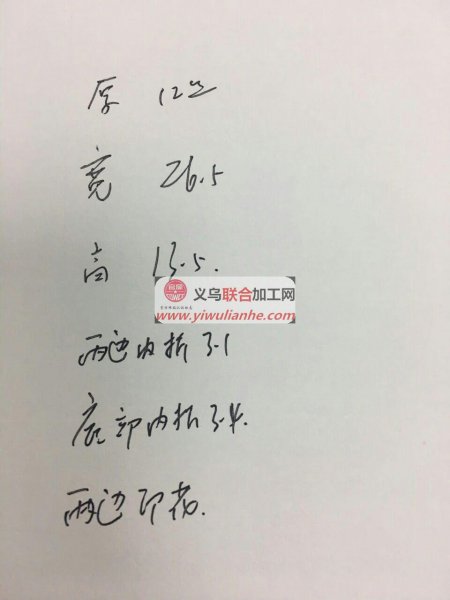 厚 12丝
宽 26.5
高 13.5.
义乌联合加工网
www.yiwulianhe.com
两边内折 3.1
底部内折 3.4.
两边印花.